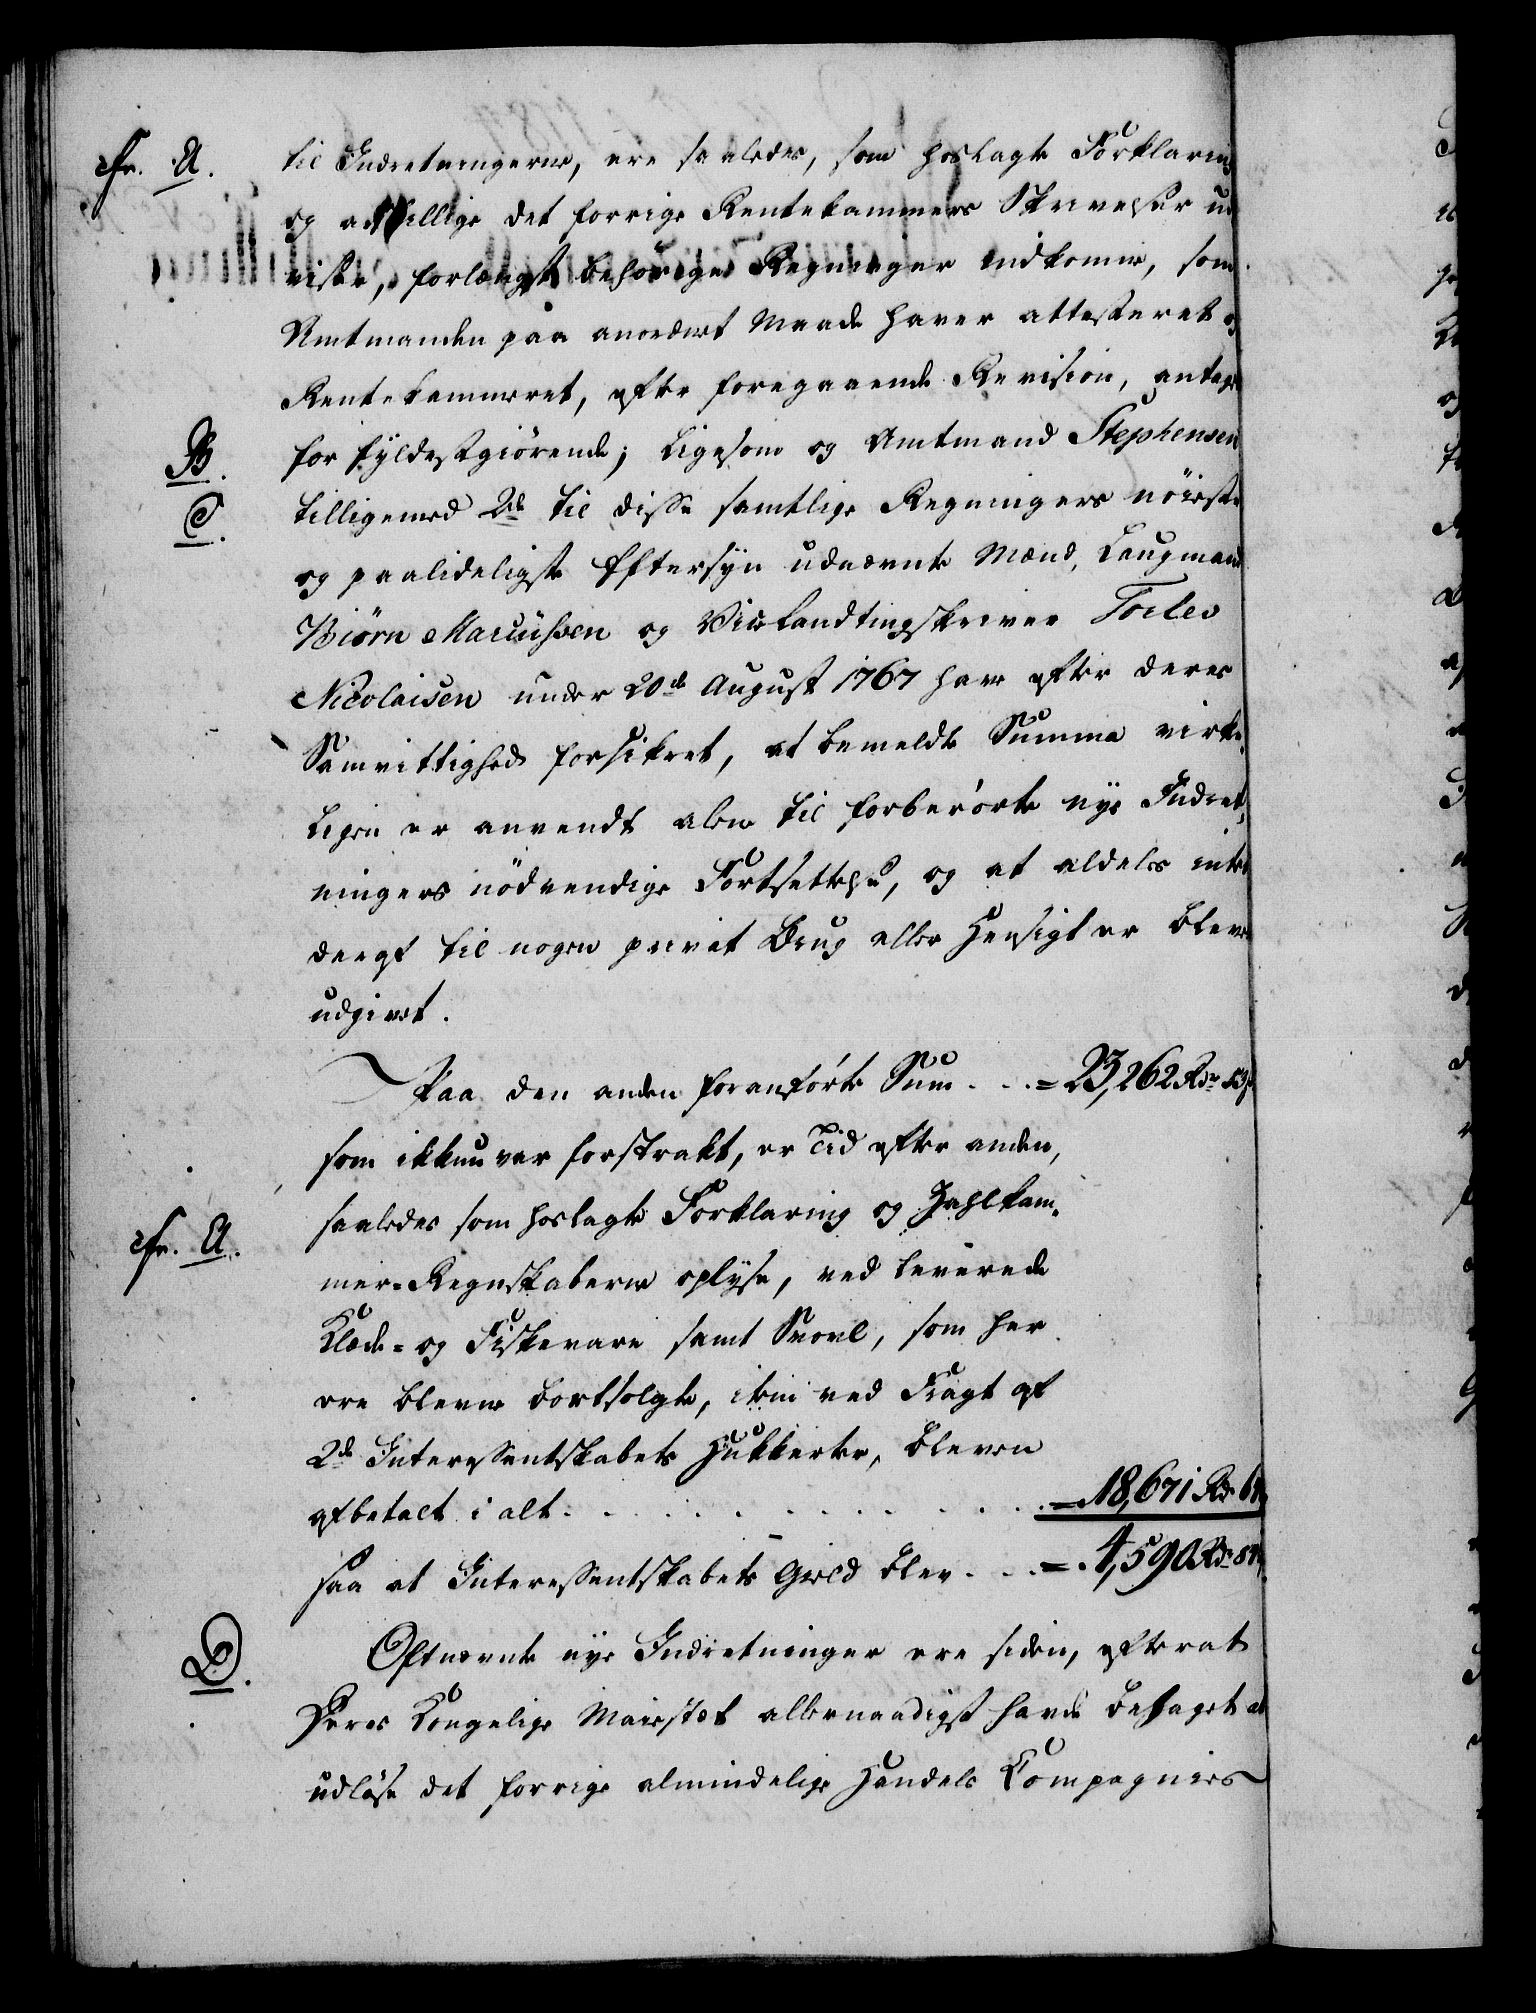 cfr. A.
til Indretningerne, ere saaledes, som hoslagte Forklaring
og adskillige det forrige Rentekammers Skrivelser ud
viser, forlængst behørige Regninger indkomne, som
Amtmanden paa anordnet Maade haver attesteret og
Rentekammeret, efter foregaaende Revision, antaget
B.
for fyldestgiørende; ligesom og Amtmand Stephensen
C.
tilligemed 2de til disse samtlige Regningers nøieste
og paalideligste Eftersyn udnævnte Mænd, Laugmand
Biörn Marcussen og Vice Landtingskriver Torlev
Nicolaisen under 20de August 1767 have efter deres
Samvittighed forsikret, at bemeldte Summa virke-
ligen er anvendt alene til forberørte nye Indret-
ningers nødvendige Fortsettelse, og at aldeles intet
deraf til nogen privat Brug eller Hensigt er bleven
udgivet.
Paa den anden foranførte Sum . . . = 23,262 Rdr 53
som ikkun var forstrakt, er Tid efter anden,
saaledes som hoslagte Forklaring og Zahlkam-
cfr. A.
mer-Regnskaberne oplyse, ved leverede
Klæde- og Fiskevare samt Svovl, som her
ere blevne bortsolgte, item ved Fragt af
2de Interessentskabets Hukkerter, bleven
afbetalt i alt . . . = 18,671 Rdr
saa at Interessentskabets Gield blev . . . = 4,590 Rdr
D.
Oftnævnte nye Indretninger ere siden, efterat
Deres Kongelige Maiestæt allernaadigst havde behaget at
udløse det forrige almindelige Handels Compagnies